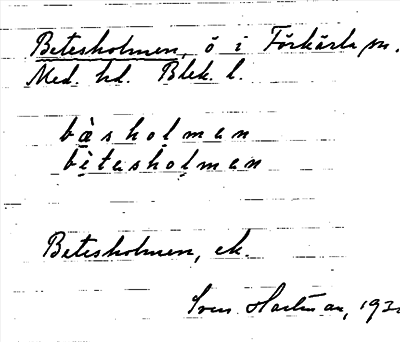 Betesholmen, ö i Förkärla sn.
Med. hd. Blek. l.
bàsholmen
bètesholmen
Betesholmen, ek.
Sven Hartman, 193